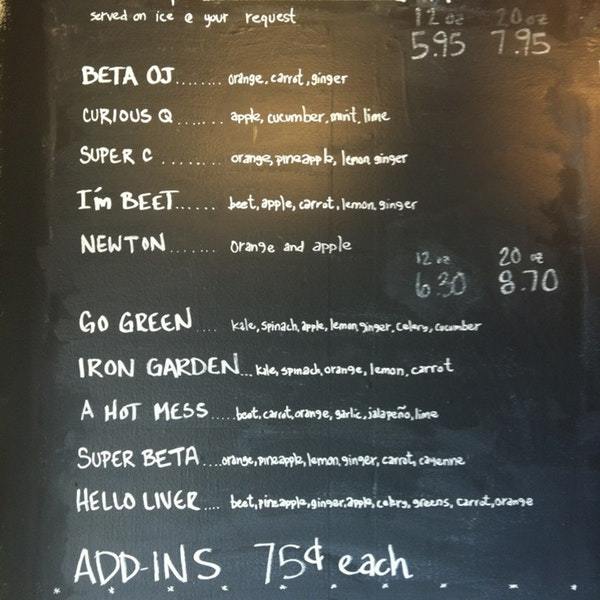 served on ice @ your request
12 oz 20 oz
5.95 7.95
BETA OJ........ orange, carrot, ginger
CURIOUS Q ...... apple, cucumber, mint, lime
SUPER C ........ orange, pineapple, lemon, ginger
I'm BEET...... beet, apple, carrot, lemon, ginger
NEWTON ....... orange and apple
12 oz 20 oz
6.30 8.70
GO GREEN .... kale, spinach, apple, lemon, ginger, celery, cucumber
IRON GARDEN... kale, spinach, orange, lemon, carrot
A HOT MESS .....beet, carrot, orange, garlic, jalapeño, lime
SUPER BETA ....orange, pineapple, lemon, ginger, carrot, cayenne
HELLO LIVER .... beet, pineapple, ginger, apple, celery, greens, carrot, orange
ADD-INS 75¢ each